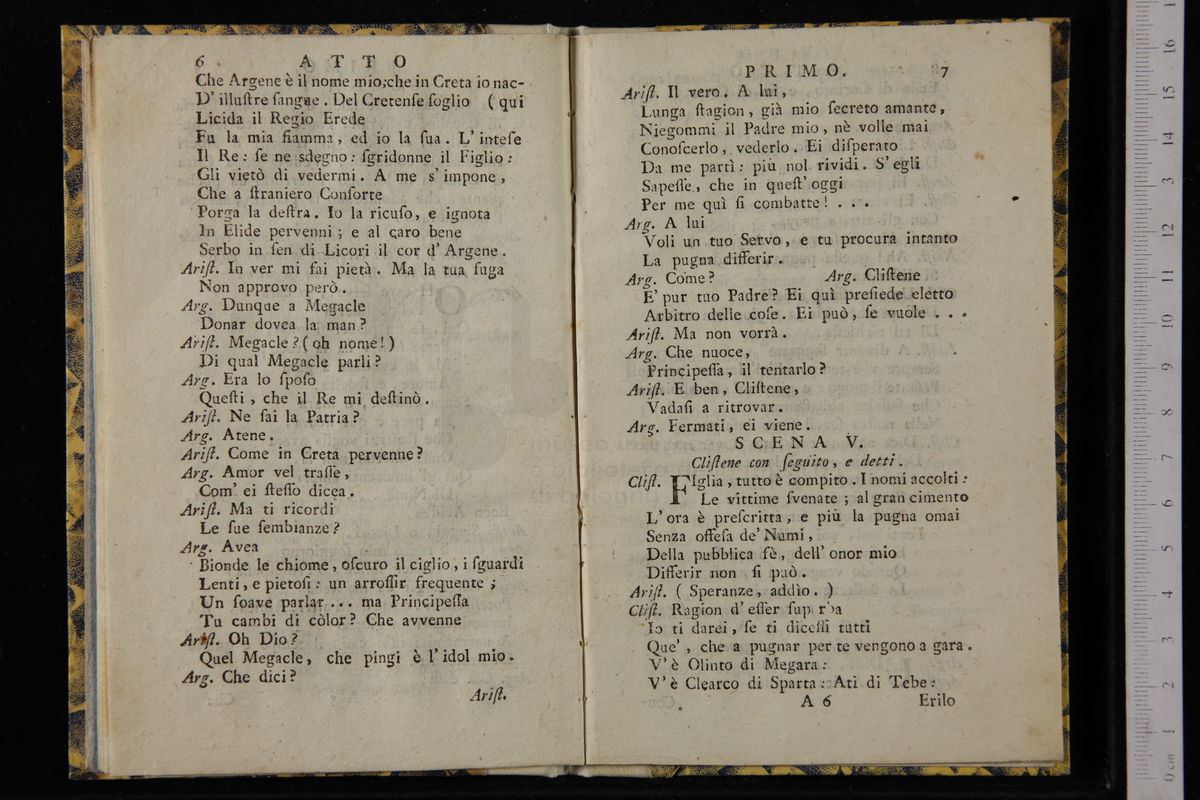 6 ATTO
Che Argene è il nome mio;che in Creta io nac-
D' illuſtre ſangue . Del Cretenſe ſoglio ( qui
Licida il Regio Erede
Fu la mia fiamma , ed io la ſua . L' inteſe
Il Re : ſe ne sdegno : ſgridonne il Figlio :
Gli vietò di vedermi . A me s' impone ,
Che a ſtraniero Conſorte
Porga la deſtra . Io la ricuſo , e ignota
In Elide pervenni ; e al caro bene
Serbo in ſen di Licori il cor d' Argene .
Ariſt. In ver mi fai pietà . Ma la tua fuga
Non approvo però .
Arg. Dunque a Megacle
Donar dovea la man ?
Ariſt. Megacle ? ( oh nome ! )
Di qual Megacle parli ?
Arg. Era lo ſpoſo
Queſti , che il Re mi deſtinò .
Ariſt. Ne ſai la Patria ?
Arg. Atene .
Ariſt. Come in Creta pervenne ?
Arg. Amor vel traſſe ,
Com' ei ſteſſo dicea .
Ariſt. Ma ti ricordi
Le ſue ſembianze ?
Arg. Avea
Bionde le chiome , oſcuro il ciglio , i ſguardi
Lenti , e pietoſi : un arroſſir frequente ;
Un ſoave parlar ... ma Principeſſa
Tu cambi di còlor ? Che avvenne
Ariſt. Oh Dio ?
Quel Megacle , che pingi è l' idol mio .
Arg. Che dici ?
Ariſt.
PRIMO. 7
Ariſt. Il vero . A lui ,
Lunga ſtagion , già mio ſecreto amante ,
Niegommi il Padre mio , nè volle mai
Conoſcerlo , vederlo . Ei diſperato
Da me partì : più nol rividi . S' egli
Sapeſſe , che in queſt' oggi
Per me quì ſi combatte ! . . .
Arg. A lui
Voli un tuo Servo , e tu procura intanto
La pugna differir .
Arg. Come ? Arg. Cliſtene
E' pur tuo Padre ? Ei quì preſiede eletto
Arbitro delle coſe . Ei può , ſe vuole . . .
Ariſt. Ma non vorrà .
Arg. Che nuoce ,
Principeſſa , il tentarlo ?
Ariſt. E ben , Cliſtene ,
Vadaſi a ritrovar .
Arg. Fermati , ei viene .
SCENA V.
Cliſtene con ſeguito , e detti .
Cliſt. FIglia , tutto è compito . I nomi accolti :
Le vittime ſvenate ; al gran cimento
L' ora è preſcritta , e più la pugna omai
Senza offeſa de' Numi ,
Della pubblica fè , dell' onor mio
Differir non ſi può .
Ariſt. ( Speranze , addìo . )
Cliſt. Ragion d' eſſer ſup rba
Io ti darei , ſe ti diceſſi tutti
Que' , che a pugnar per te vengono a gara .
V' è Olinto di Megara :
V' è Clearco di Sparta : Ati di Tebe :
A 6 Erilo
0 cm 1 2 3 4 5 6 7 8 9 10 11 12 13 14 15 16